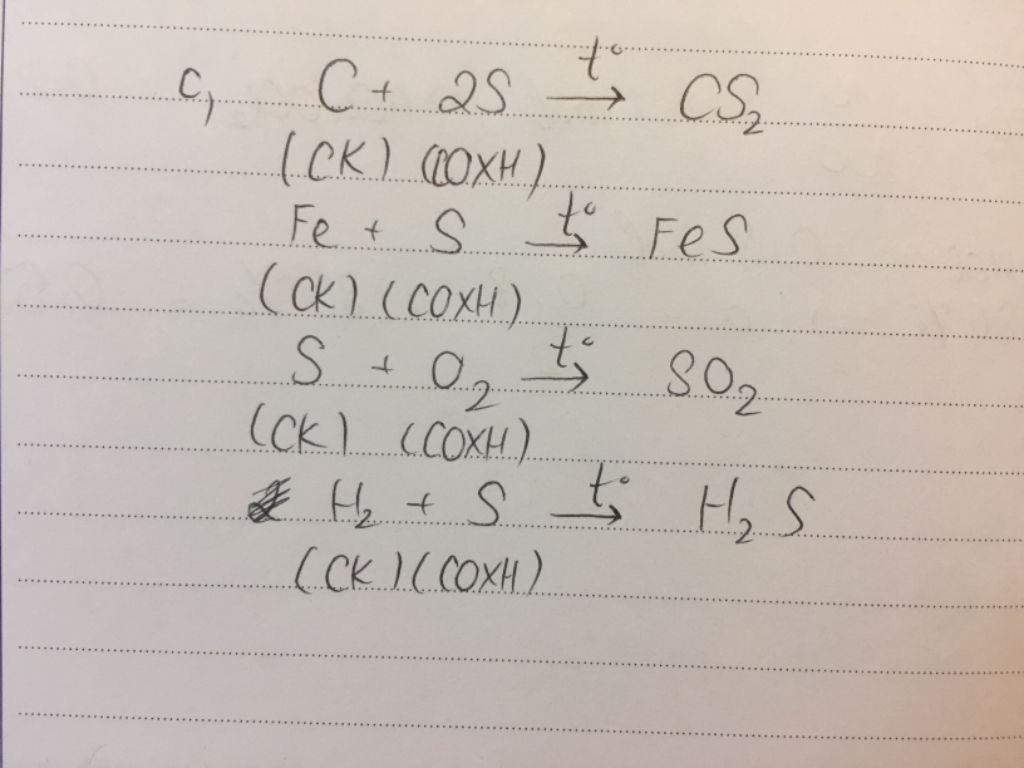 c, C + 2S →t° CS₂
(CK) (COXH)
Fe + S →t° FeS
(CK) (COXH)
S + O₂ →t° SO₂
(CK) (COXH)
H₂ + S →t° H₂S
(CK) (COXH)